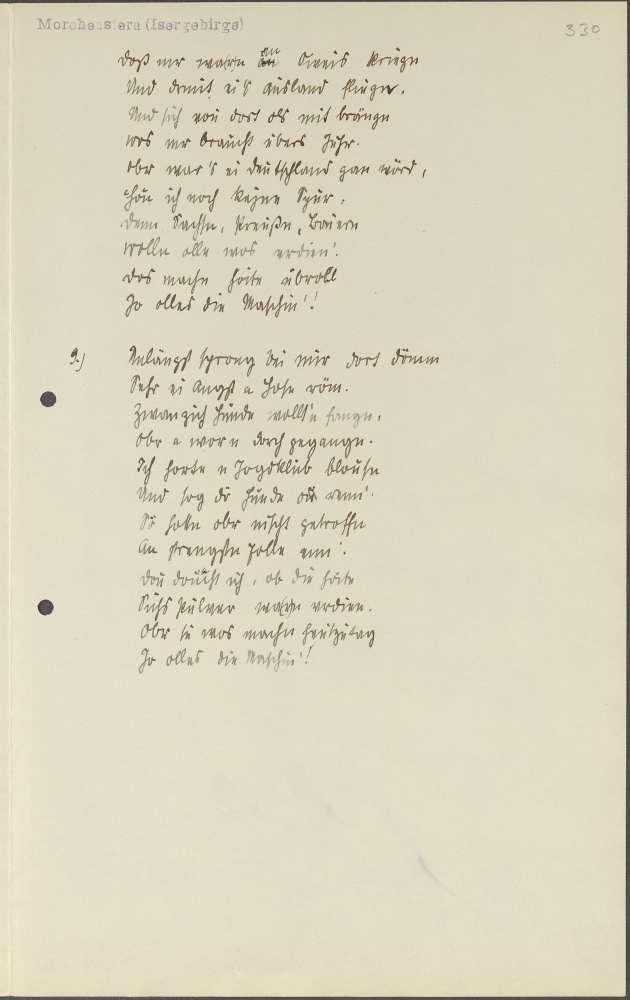 Morchenstern (Isergebirge)
330
daß mr warn an Preis kriegn
Und damit ei's Ausland fliegn.
Und sich von dort ols mit brängn
wos mr braucht übers Juhr.
Obr war's ei Deutschland gan wörd,
hon ich noch keine Spur.
Denn Sachsn, Preußn, Bauern
wolln olle wos erdien'.
Dos machn heite übroll
Jo olles die Maschin'!
9.)
Unlängst sprong bei mir dort dömm
Sehr ei Angst a Hose röm.
Zwanzich Hunde wollt'n fangn,
Obr a worn dorch gegangn.
Ich horte n Jogdklub blousn
Und sog di Hunde renn'.
Se hottn obr nischt getroffn
An strengstn Folle enn'.
Dou doucht ich, ob die heite
Pulver erdien.
Obr su wos machn heutzutag
Jo olles die Maschin'!